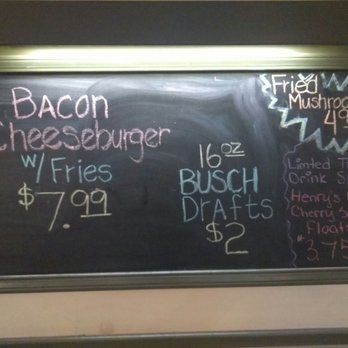 Bacon
Cheeseburger
w/ Fries
$7.99
16oz
BUSCH
Drafts
$2
Fried
Mushroo
4.9
Limted T
Drink S
Henry's
Cherry S
Float
$3.75